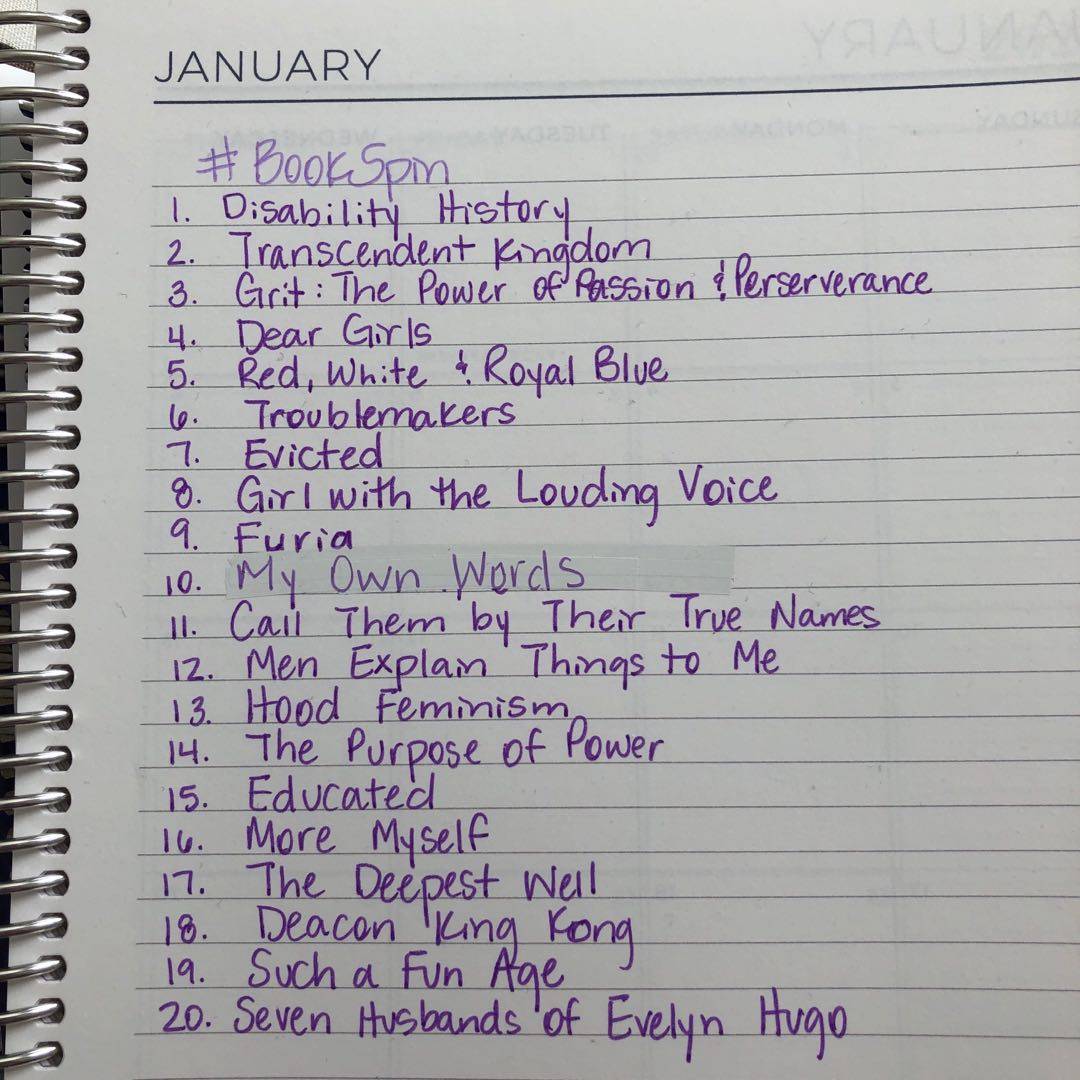 JANUARY
#BookSpin
1. Disability History
2. Transcendent Kingdom
3. Grit: The Power of Passion & Perserverance
4. Dear Girls
5. Red, White & Royal Blue
6. Troublemakers
7. Evicted
8. Girl with the Louding Voice
9. Furia
10. My Own Words
11. Call Them by Their True Names
12. Men Explain Things to Me
13. Hood Feminism
14. The Purpose of Power
15. Educated
16. More Myself
17. The Deepest Well
18. Deacon King Kong
19. Such a Fun Age
20. Seven Husbands of Evelyn Hugo